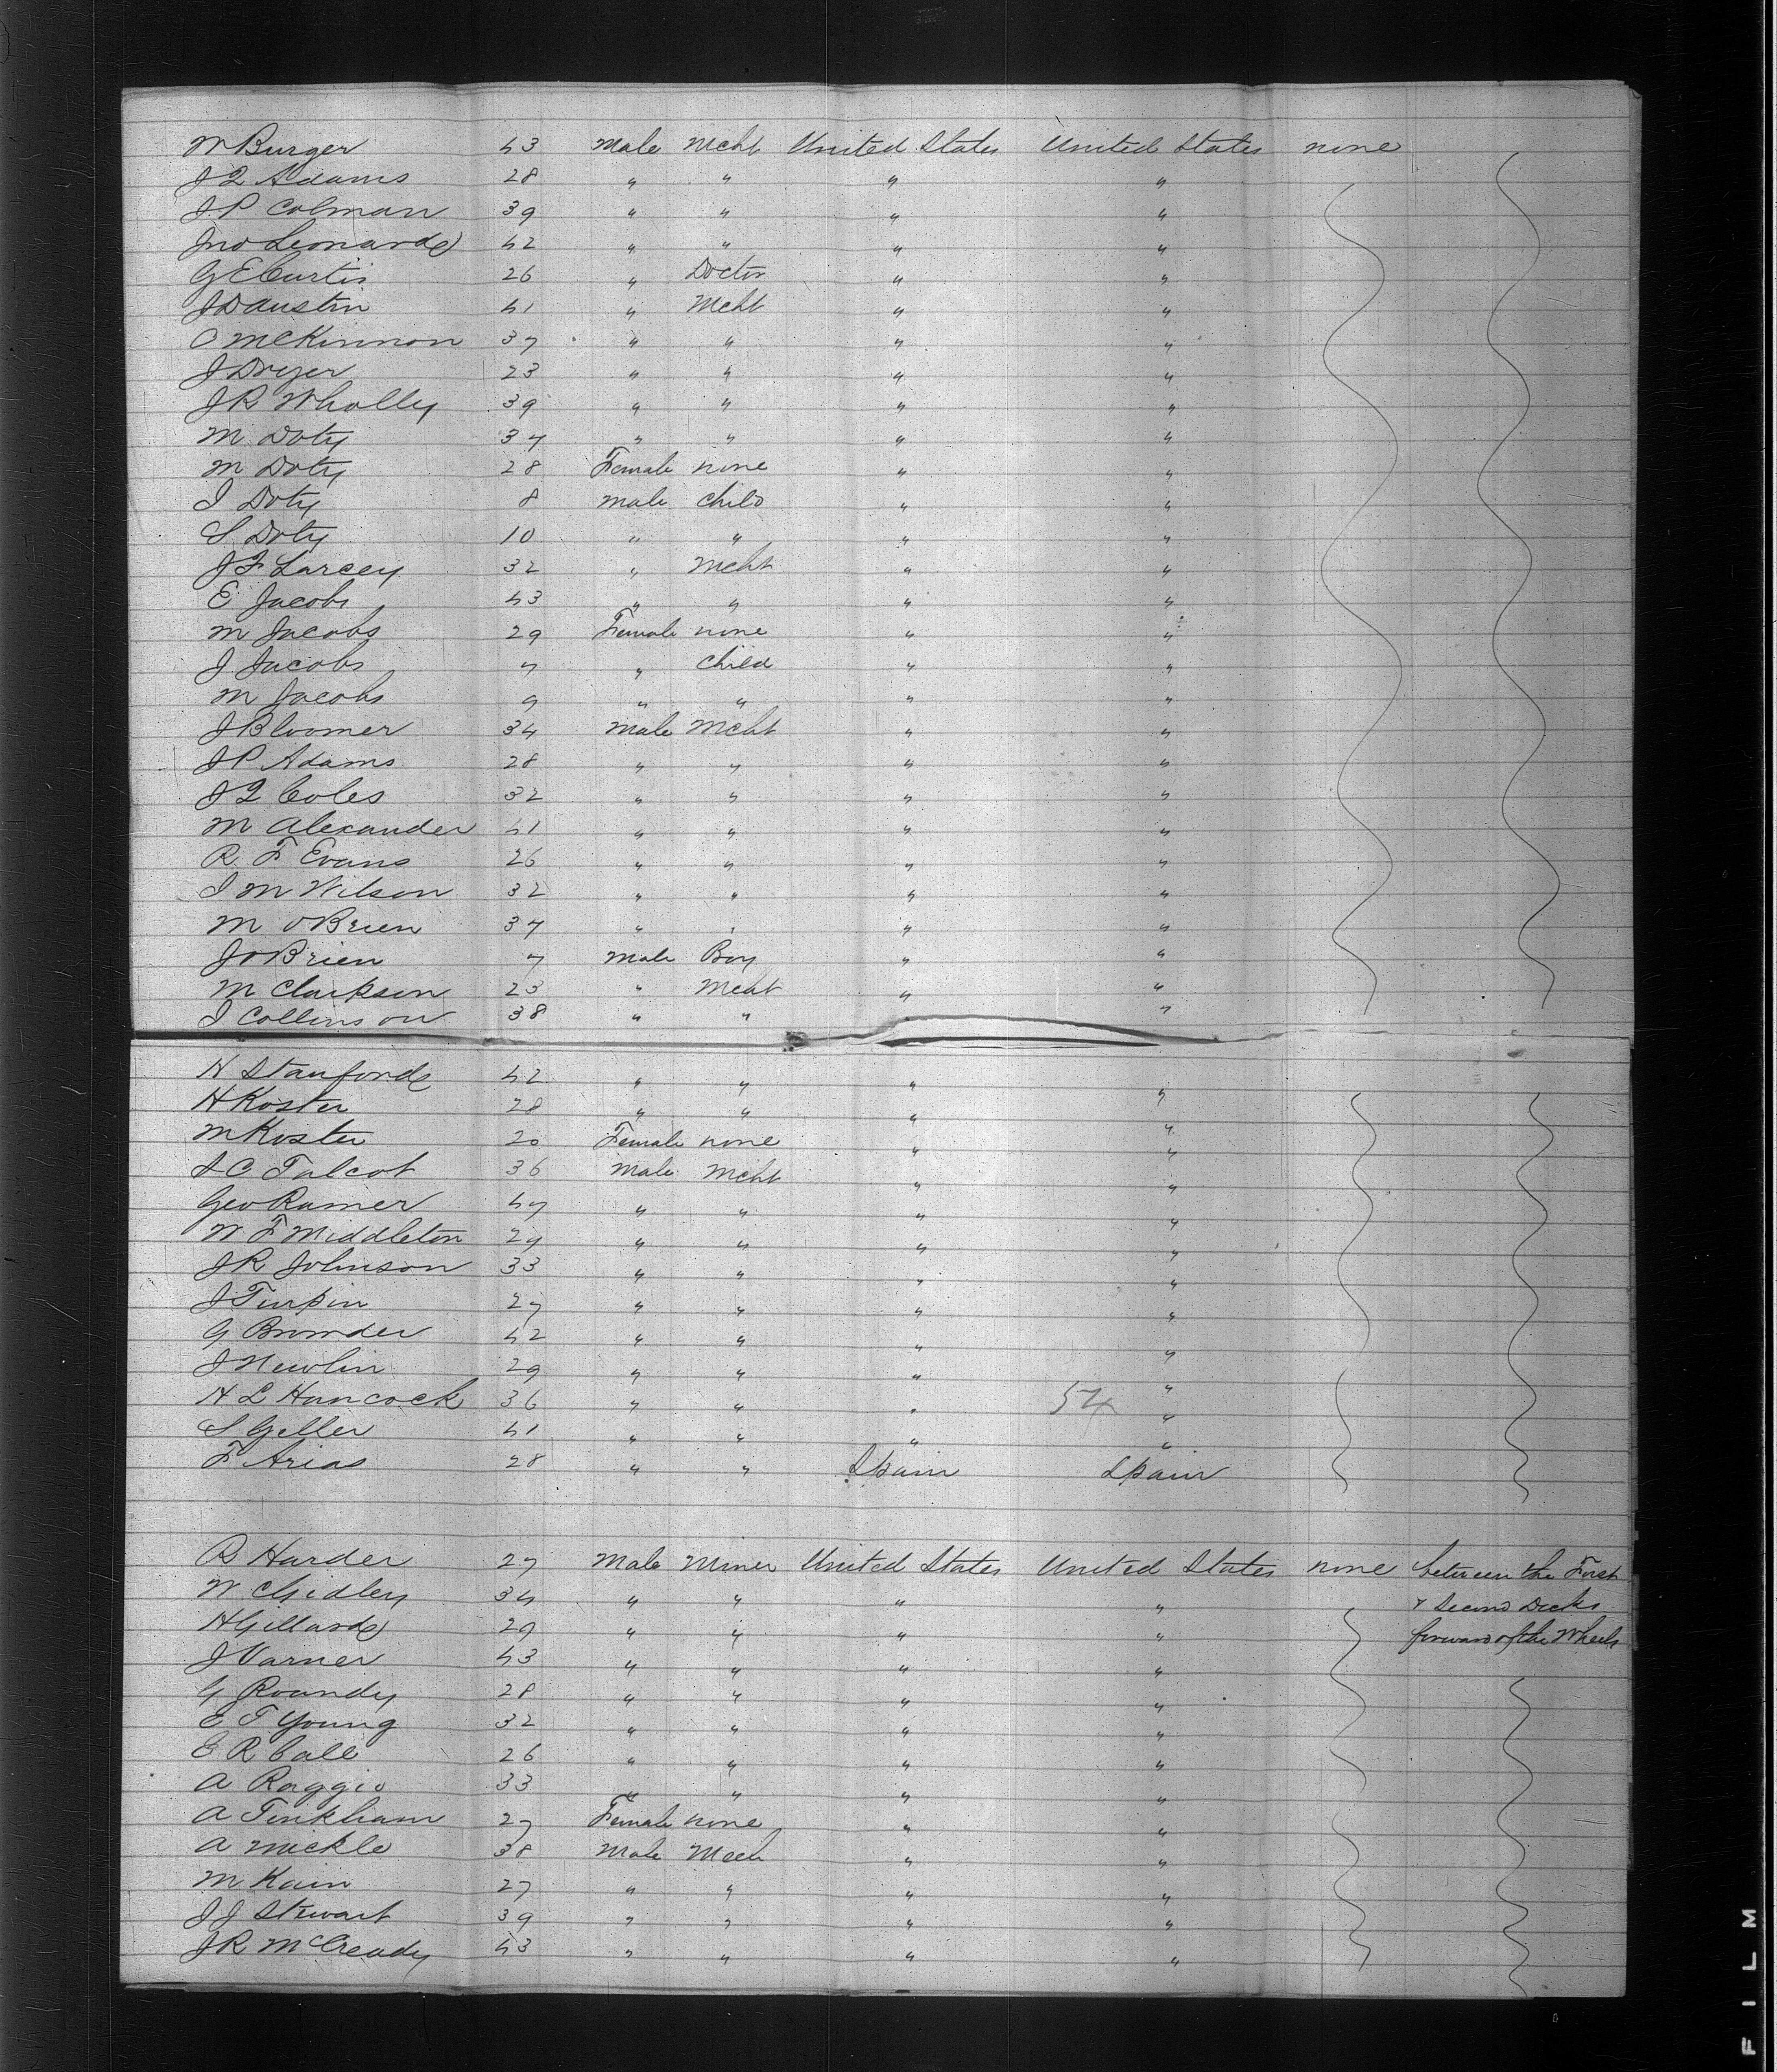 W Burger 43 Male Mcht United States United States none
J Q Adams 28 " " " "
J P Colman 39 " " " "
Jno Leonard 42 " " " "
G E Curtis 26 " Doctor " "
J D Austin 41 " Mcht " "
C McKinnon 37 " " " "
J Dryer 23 " " " "
J R Wholly 39 " " " "
M Doty 37 " " " "
M Doty 28 Female none " "
I Doty 8 Male Child " "
S Doty 10 " " " "
J F Larcey 32 " Mcht " "
E Jacobs 43 " " " "
M Jacobs 29 Female none " "
J Jacobs 7 " Child " "
M Jacobs 9 " " " "
J Bloomer 34 Male Mcht " "
J P Adams 28 " " " "
J Q Coles 32 " " " "
M Alexander 41 " " " "
R F Evans 26 " " " "
I M Wilson 32 " " " "
M OBrien 37 " " " "
J OBrien 7 Male Boy " "
M Clarkson 23 " Mcht " "
I Collinson 38 " " "
H Stanford 42 " " " "
H Koster 28 " " " "
M Koster 20 Female none " "
J C Talcot 36 Male Mcht " "
Geo Ramer 47 " " " "
W F Middleton 29 " " " "
J R Johnson 33 " " " "
J Turpin 27 " " " "
G Browder 42 " " " "
J Newlin 29 " " " "
H L Hancock 36 " " " 54 "
S Geller 41 " " " "
F Arias 28 " " Spain Spain
B Harder 27 Male Miner United States United States none between the First
W Chidley 34 " " " " & Second Decks
H Gillard 29 " " " " forward of the Wheels
J Varner 43 " " " "
G Roundy 28 " " " "
E T Young 32 " " " "
E R Call 26 " " " "
A Raggio 33 " " " "
A Tinkham 27 Female none " "
A Mickle 38 Male Mech " "
M Kain 27 " " " "
J J Stewart 39 " " " "
J R McCready 43 " " " "
FILM